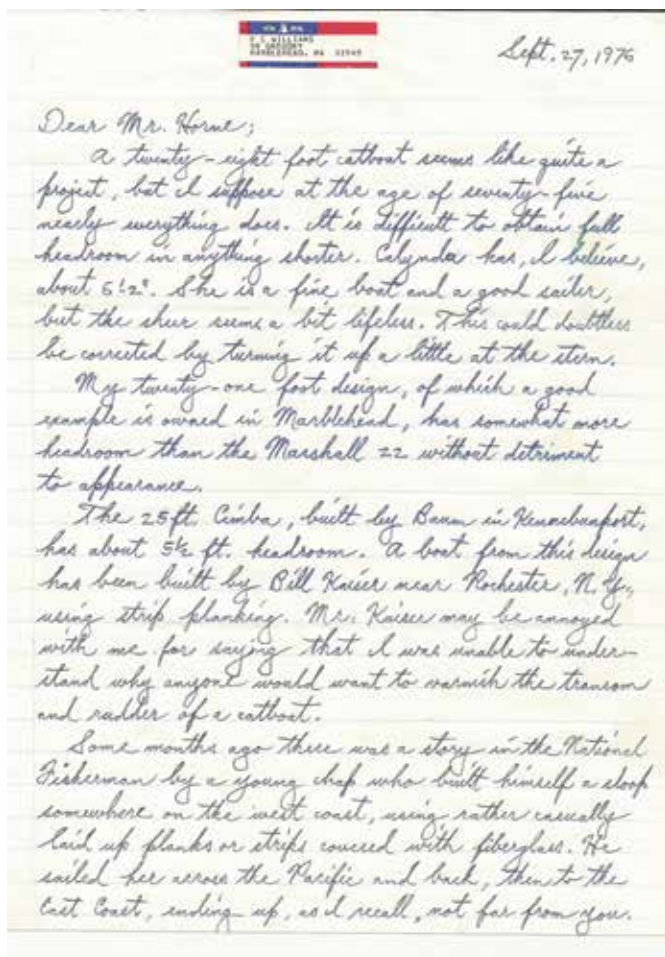 F C WILLIAMS
MARBLEHEAD, MA 01945
Sept. 27, 1976
Dear Mr. Horne;
A twenty-eight foot catboat seems like quite a
project, but I suppose at the age of seventy-five
nearly everything does. It is difficult to obtain full
headroom in anything shorter. Calynda has, I believe,
about 6'2". She is a fine boat and a good sailer,
but the sheer seems a bit lifeless. This could doubtless
be corrected by turning it up a little at the stern.
My twenty-one foot design, of which a good
example is owned in Marblehead, has somewhat more
headroom than the Marshall 22 without detriment
to appearance.
The 25 ft. Cimba, built by Baum in Kennebunkport,
has about 5½ ft. headroom. A boat from this design
has been built by Bill Kaiser near Rochester, N.Y.,
using strip planking. Mr. Kaiser may be annoyed
with me for saying that I was unable to under-
stand why anyone would want to varnish the transom
and rudder of a catboat.
Some months ago there was a story in the National
Fisherman by a young chap who built himself a sloop
somewhere on the west coast, using rather casually
laid up planks or strips covered with fiberglass. He
sailed her across the Pacific and back, then to the
East Coast, ending up, as I recall, not far from you.